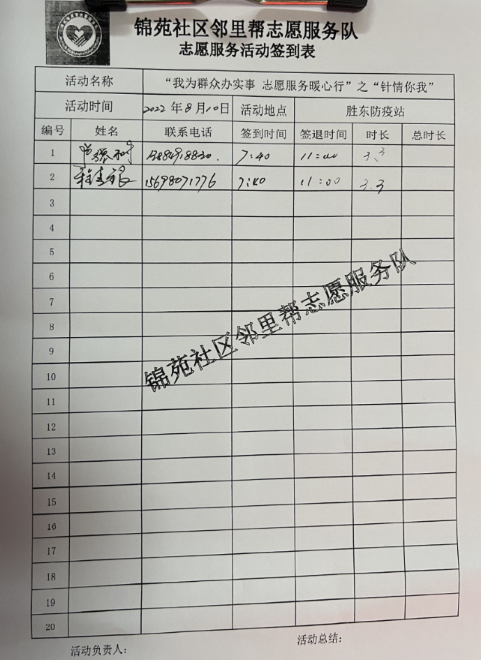 锦苑社区邻里帮志愿服务队
志愿服务活动签到表
活动名称 “我为群众办实事 志愿服务暖心行”之“针情你我”
活动时间 2022 年 8 月 10 日 活动地点 胜东防疫站
编号 姓名 联系电话 签到时间 签退时间 时长 总时长
1 7:40 11:00 3.3
2 15698071776 7:40 11:00 3.3
3
4
5
6
7
8
9
10
11
12
13
14
15
16
17
18
19
20
锦苑社区邻里帮志愿服务队
活动负责人: 活动总结: